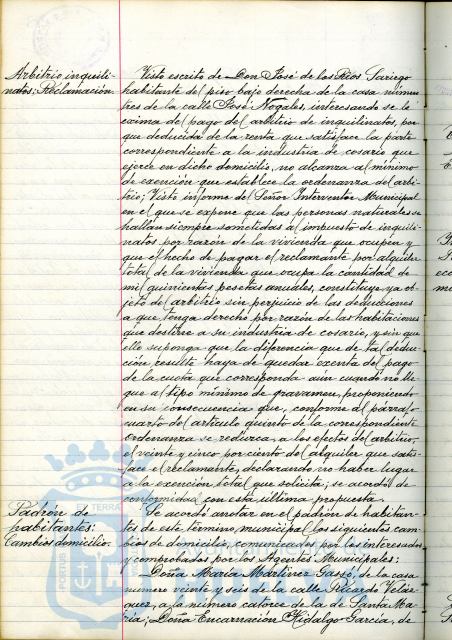 Arbitrio inquili-
natos: Reclamación
Visto escrito de Don José de los Ríos Gariego
habitante del piso bajo derecha de la casa núme-
tres de la calle José Nogales, interesando se le
exima del pago del arbitrio de inquilinatos, por
que deducida de la renta que satisface la parte
correspondiente a la industria de cosario que
ejerce en dicho domicilio, no alcanza al mínimo
de exención que establece la ordenanza del arbi-
trio; Visto informe del Señor Interventor Municipal
en el que se expone que las personas naturales se
hallan siempre sometidas al impuesto de inquili-
natos por razón de la vivienda que ocupen y
que el hecho de pagar el reclamante por alquiler
total de la vivienda que ocupa la cantidad de
mil quinientas pesetas anuales, constituye ya ob
jeto del arbitrio sin perjuicio de las deducciones
a que tenga derecho por razón de las habitaciones
que destine a su industria de cosario, y sin que
ello suponga que la diferencia que de tal deduc-
ción, resulte haya de quedar exenta del pago
de la cuota que corresponda aún cuando no lle
gue al tipo mínimo de gravamen, proponiendo
en su consecuencia que, conforme al párrafo
cuarto del artículo quinto de la correspondiente
ordenanza se reduzca, a los efectos del arbitrio,
el veinte y cinco por ciento del alquiler que satis-
face el reclamante, declarando no haber lugar
a la exención total que solicita; se acordó de
conformidad con esta última propuesta.
Padrón de
habitantes:
Cambios domicilio:
Se acordó anotar en el padrón de habitan-
tes de este término municipal los siguientes cam-
bios de domicilio, comunicados por los interesados
y comprobados por los Agentes Municipales:
Doña María Martínez Gassó, de la casa
número veinte y seis de la calle Ricardo Veláz-
quez, a la número catorce de la de Santa Ma-
ría; Doña Encarnación Hidalgo García, de